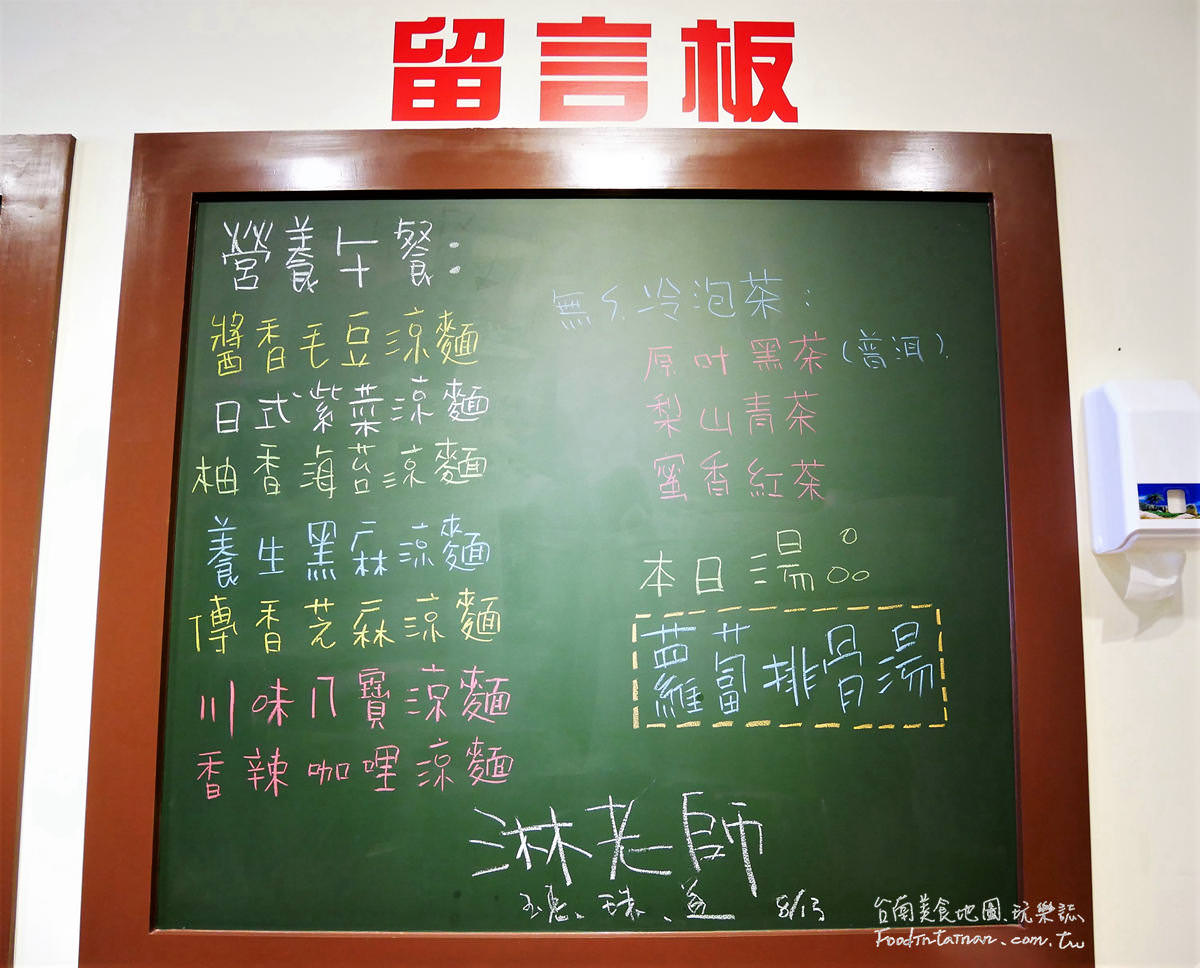 留言板
營養午餐:
醬香毛豆涼麵
日式紫菜涼麵
柚香海苔涼麵
養生黑麻涼麵
傳香芝麻涼麵
川味八寶涼麵
香辣咖哩涼麵
無ㄊ冷泡茶:
原叶黑茶(普洱).
梨山青茶
蜜香紅茶
本日湯
蘿蔔排骨湯
淋老師
8/13
台南美食地圖.玩樂誌
FoodInTainan.com.tw